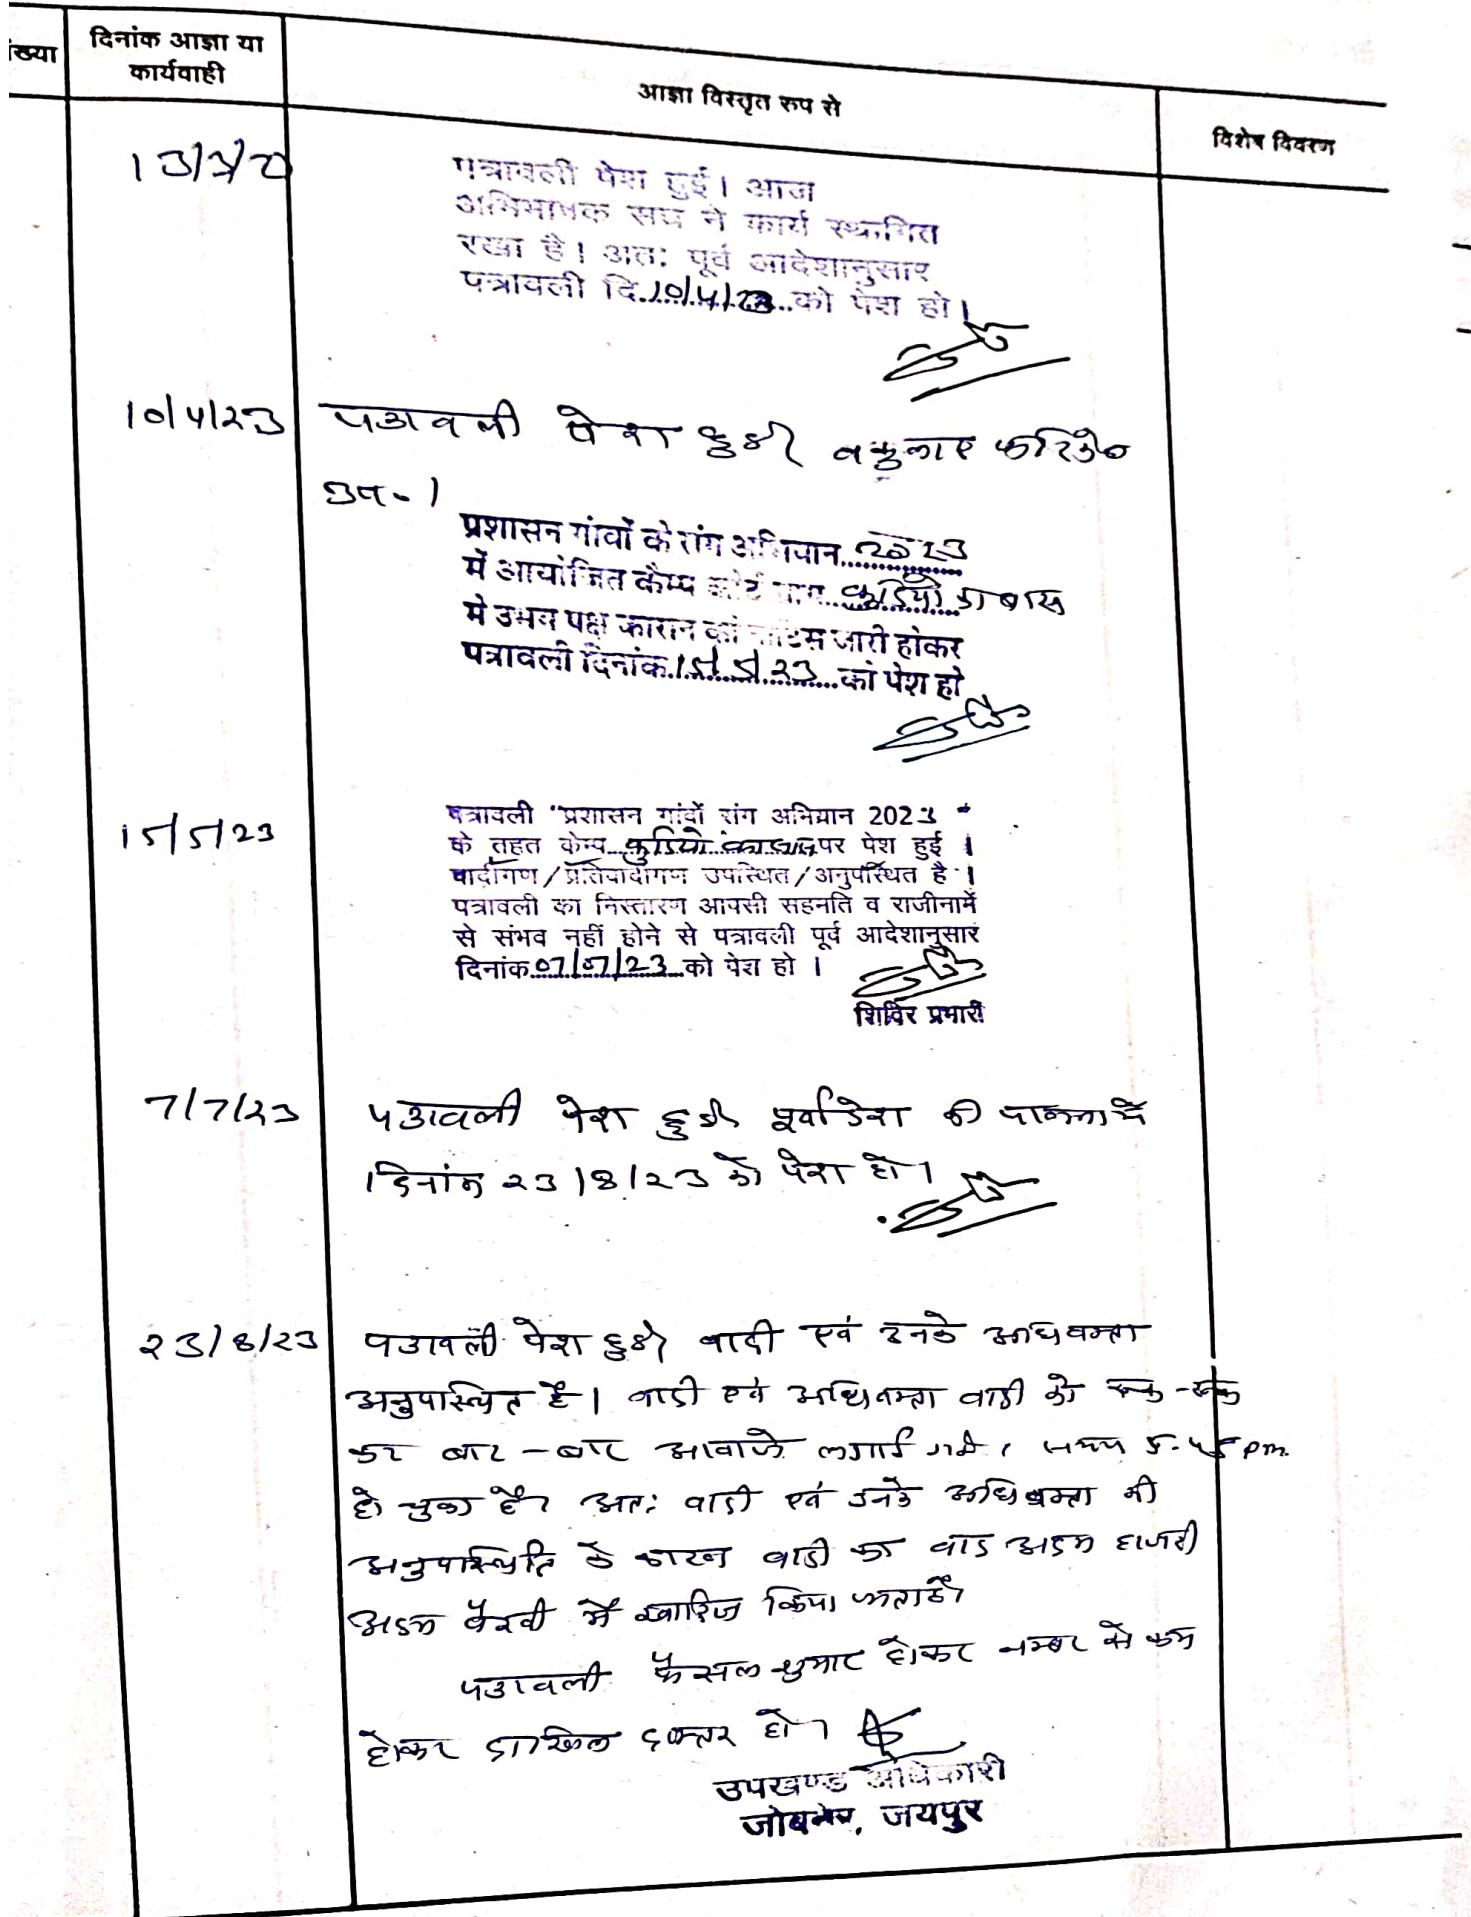 ंख्या
दिनांक आज्ञा या
कार्यवाही
आज्ञा विस्तृत रुप से
विशेष विवरण
पत्रावली पेश हुई। आज
अभिभाषक संघ ने कार्य स्थगित
रखा है। अतः पूर्व आदेशानुसार
पत्रावली दि.10/4/23..को पेश हो।
10/4/23
पत्रावली पेश हुई।
उप.।
प्रशासन गांवों के संग अभियान..2023
में आयोजित कैम्प कोर्ट ग्राम..कुडियो का बास
मे उभय पक्ष कारान को नोटिस जारी होकर
पत्रावली दिनांक.15/5/23....को पेश हो
15/5/23
पत्रावली "प्रशासन गांवों संग अभियान 2023 "
के तहत केम्प...कुडियो का बास पर पेश हुई ।
वादीगण/प्रतिवादीगण उपस्थित/अनुपस्थित है ।
पत्रावली का निस्तारण आपसी सहमति व राजीनामें
से संभव नहीं होने से पत्रावली पूर्व आदेशानुसार
दिनांक.07/07/23...को पेश हो ।
शिविर प्रभारी
7/7/23
पत्रावली पेश हुई पूर्वादेश की पालना में
दिनांक 23/8/23 को पेश हो।
23/8/23
पत्रावली पेश हुई। वादी एवं उनके अधिवक्ता
अनुपस्थित है। वादी एवं अधिवक्ता वादी को रूक-रूक
कर बार-बार आवाजे लगाई गयी। समय 5.45 pm.
हो चुका है। अतः वादी एवं उनके अधिवक्ता की
अनुपस्थिति के कारण वादी का वाद अदम हाजरी
अदम पैरवी में खारिज किया जाता है।
पत्रावली फैसल शुमार होकर नम्बर से कम
होकर दाखिल दफ्तर हो।
उपखण्ड अधिकारी
जोबनेर, जयपुर